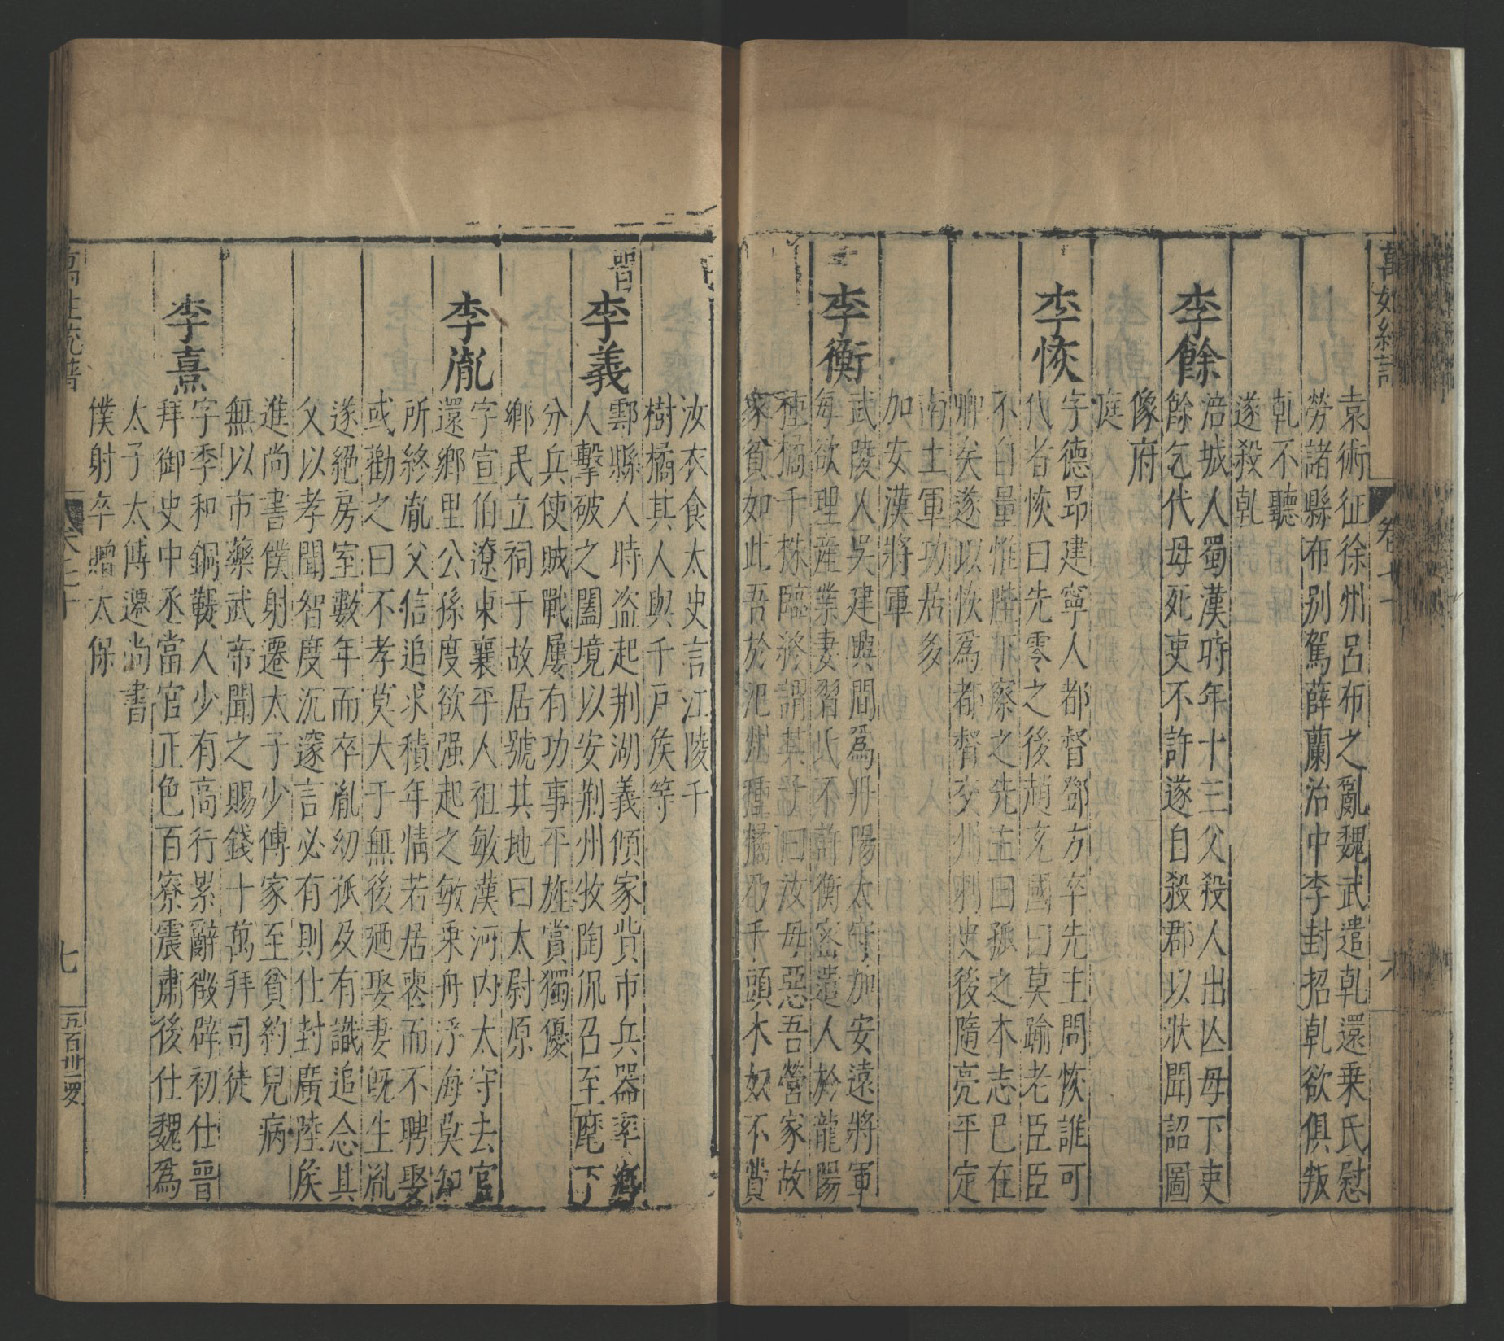 袁術征徐州呂布之亂魏武遣乾還乗氏慰
勞諸縣布别駕薛蘭治中李封招乾欲俱叛
乾不聽
遂殺乾
李餘
涪城人蜀漢時年十三父殺人出亾母下吏
餘乞代母死吏不許遂自殺郡以狀聞詔圖
像府
庭
李恢
字德昂建寧人都督鄧方卒先主問恢誰可
代者恢曰先零之後趙充國曰莫踰老臣臣
不自量惟陛下察之先主曰孤之本志已在
卿矣遂以恢爲都督交州刺史後隨亮平定
南土軍功居多
加安漢將軍
李衡
武陵人吳建興間爲丹陽太守加安遠將軍
每欲理産業妻習氏不許衡密遣人於龍陽
種橘千株臨終謂其子曰汝母惡吾營家故
家貧如此吾於汜洲種橘乃千頭木奴不責
汝衣食太史言江陵千
樹橘其人與千戸矦等
晋
李義
鄠縣人時盗起荆湖義傾家貲市兵器率鄉
人擊破之闔境以安荆州牧陶侃召至麾下
分兵使賊戰屢有功事平旌賞獨優
鄉民立祠于故居號其地曰太尉原
李胤
字宣伯遼東襄平人祖敏漢河内太守去官
還鄉里公孫度欲强起之敏乗舟浮海莫知
所終胤父信追求積年情若居喪而不聘娶
或勸之曰不孝莫大于無後廼娶妻既生胤
遂絕房室數年而卒胤幼孤及有識追念其
父以孝聞智度沉邃言必有則仕封廣陸矦
進尚書僕射遷太子少傅家至貧約兒病
無以市藥武帝聞之賜錢十萬拜司徒
李熹
字季和銅鞮人少有高行累辭徵辟初仕晋
拜御史中丞當官正色百寮震肅後仕魏爲
太子太傅遷尚書
僕射卒贈太保
萬姓統譜
卷七十
七
五百卅一